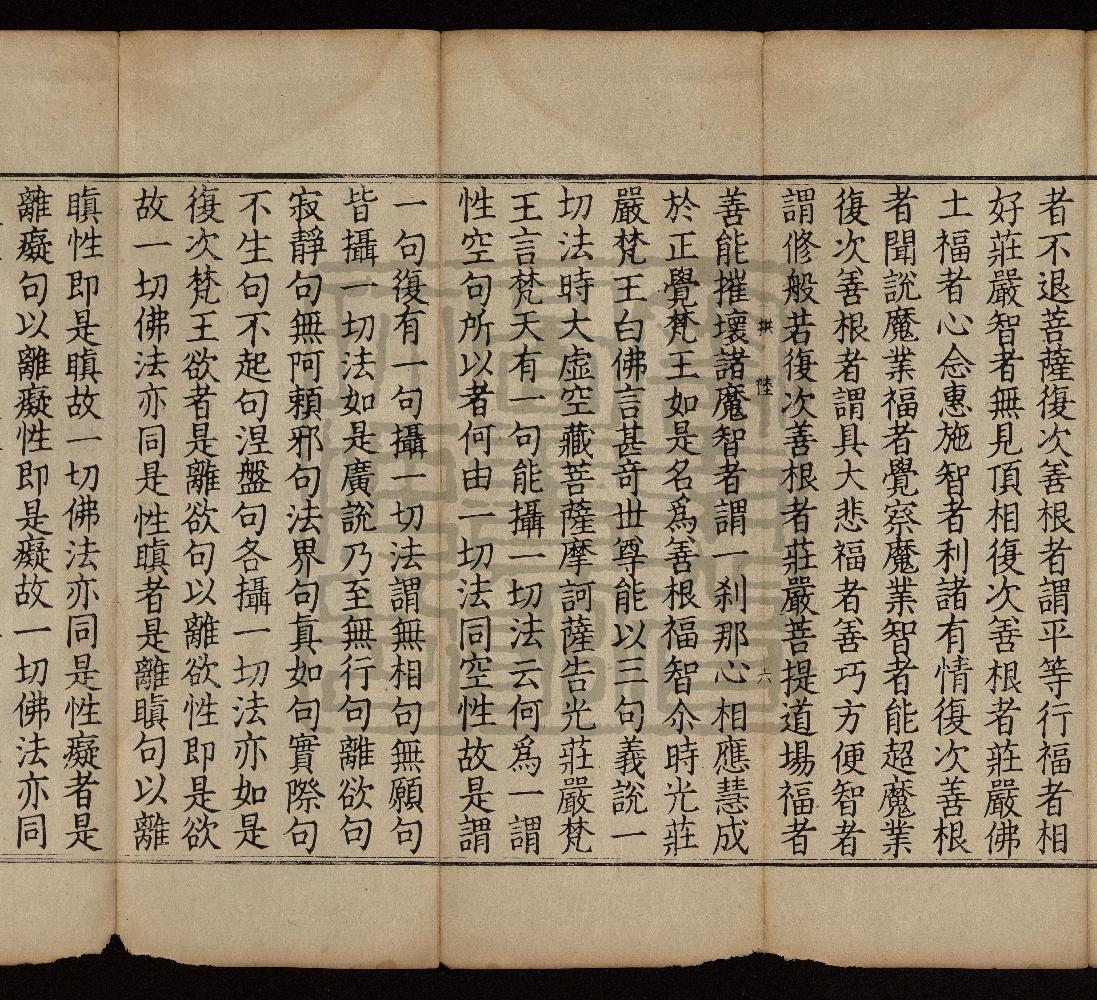 者不退菩薩復次善根者謂平等行福者相
好莊嚴智者無見頂相復次善根者莊嚴佛
土福者心念惠施智者利諸有情復次善根
者聞說魔業福者覺察魔業智者能超魔業
復次善根者謂具大悲福者善巧方便智者
謂修般若復次善根者莊嚴菩提道場福者
陸 六
善能摧壞諸魔智者謂一刹那心相應慧成
於正覺梵王如是名為善根福智尒時光莊
嚴梵王白佛言甚奇丗尊能以三句義說一
切法時大虛空藏菩薩摩訶薩告光莊嚴梵
王言梵天有一句能攝一切法云何為一謂
性空句所以者何由一切法同空性故是謂
一句復有一句攝一切法謂無相句無願句
皆攝一切法如是廣說乃至無行句離欲句
寂靜句無阿賴邪句法界句真如句實際句
不生句不起句涅盤句各攝一切法亦如是
復次梵王欲者是離欲句以離欲性即是欲
故一切佛法亦同是性瞋者是離瞋句以離
瞋性即是瞋故一切佛法亦同是性癡者是
離癡句以離癡性即是癡故一切佛法亦同